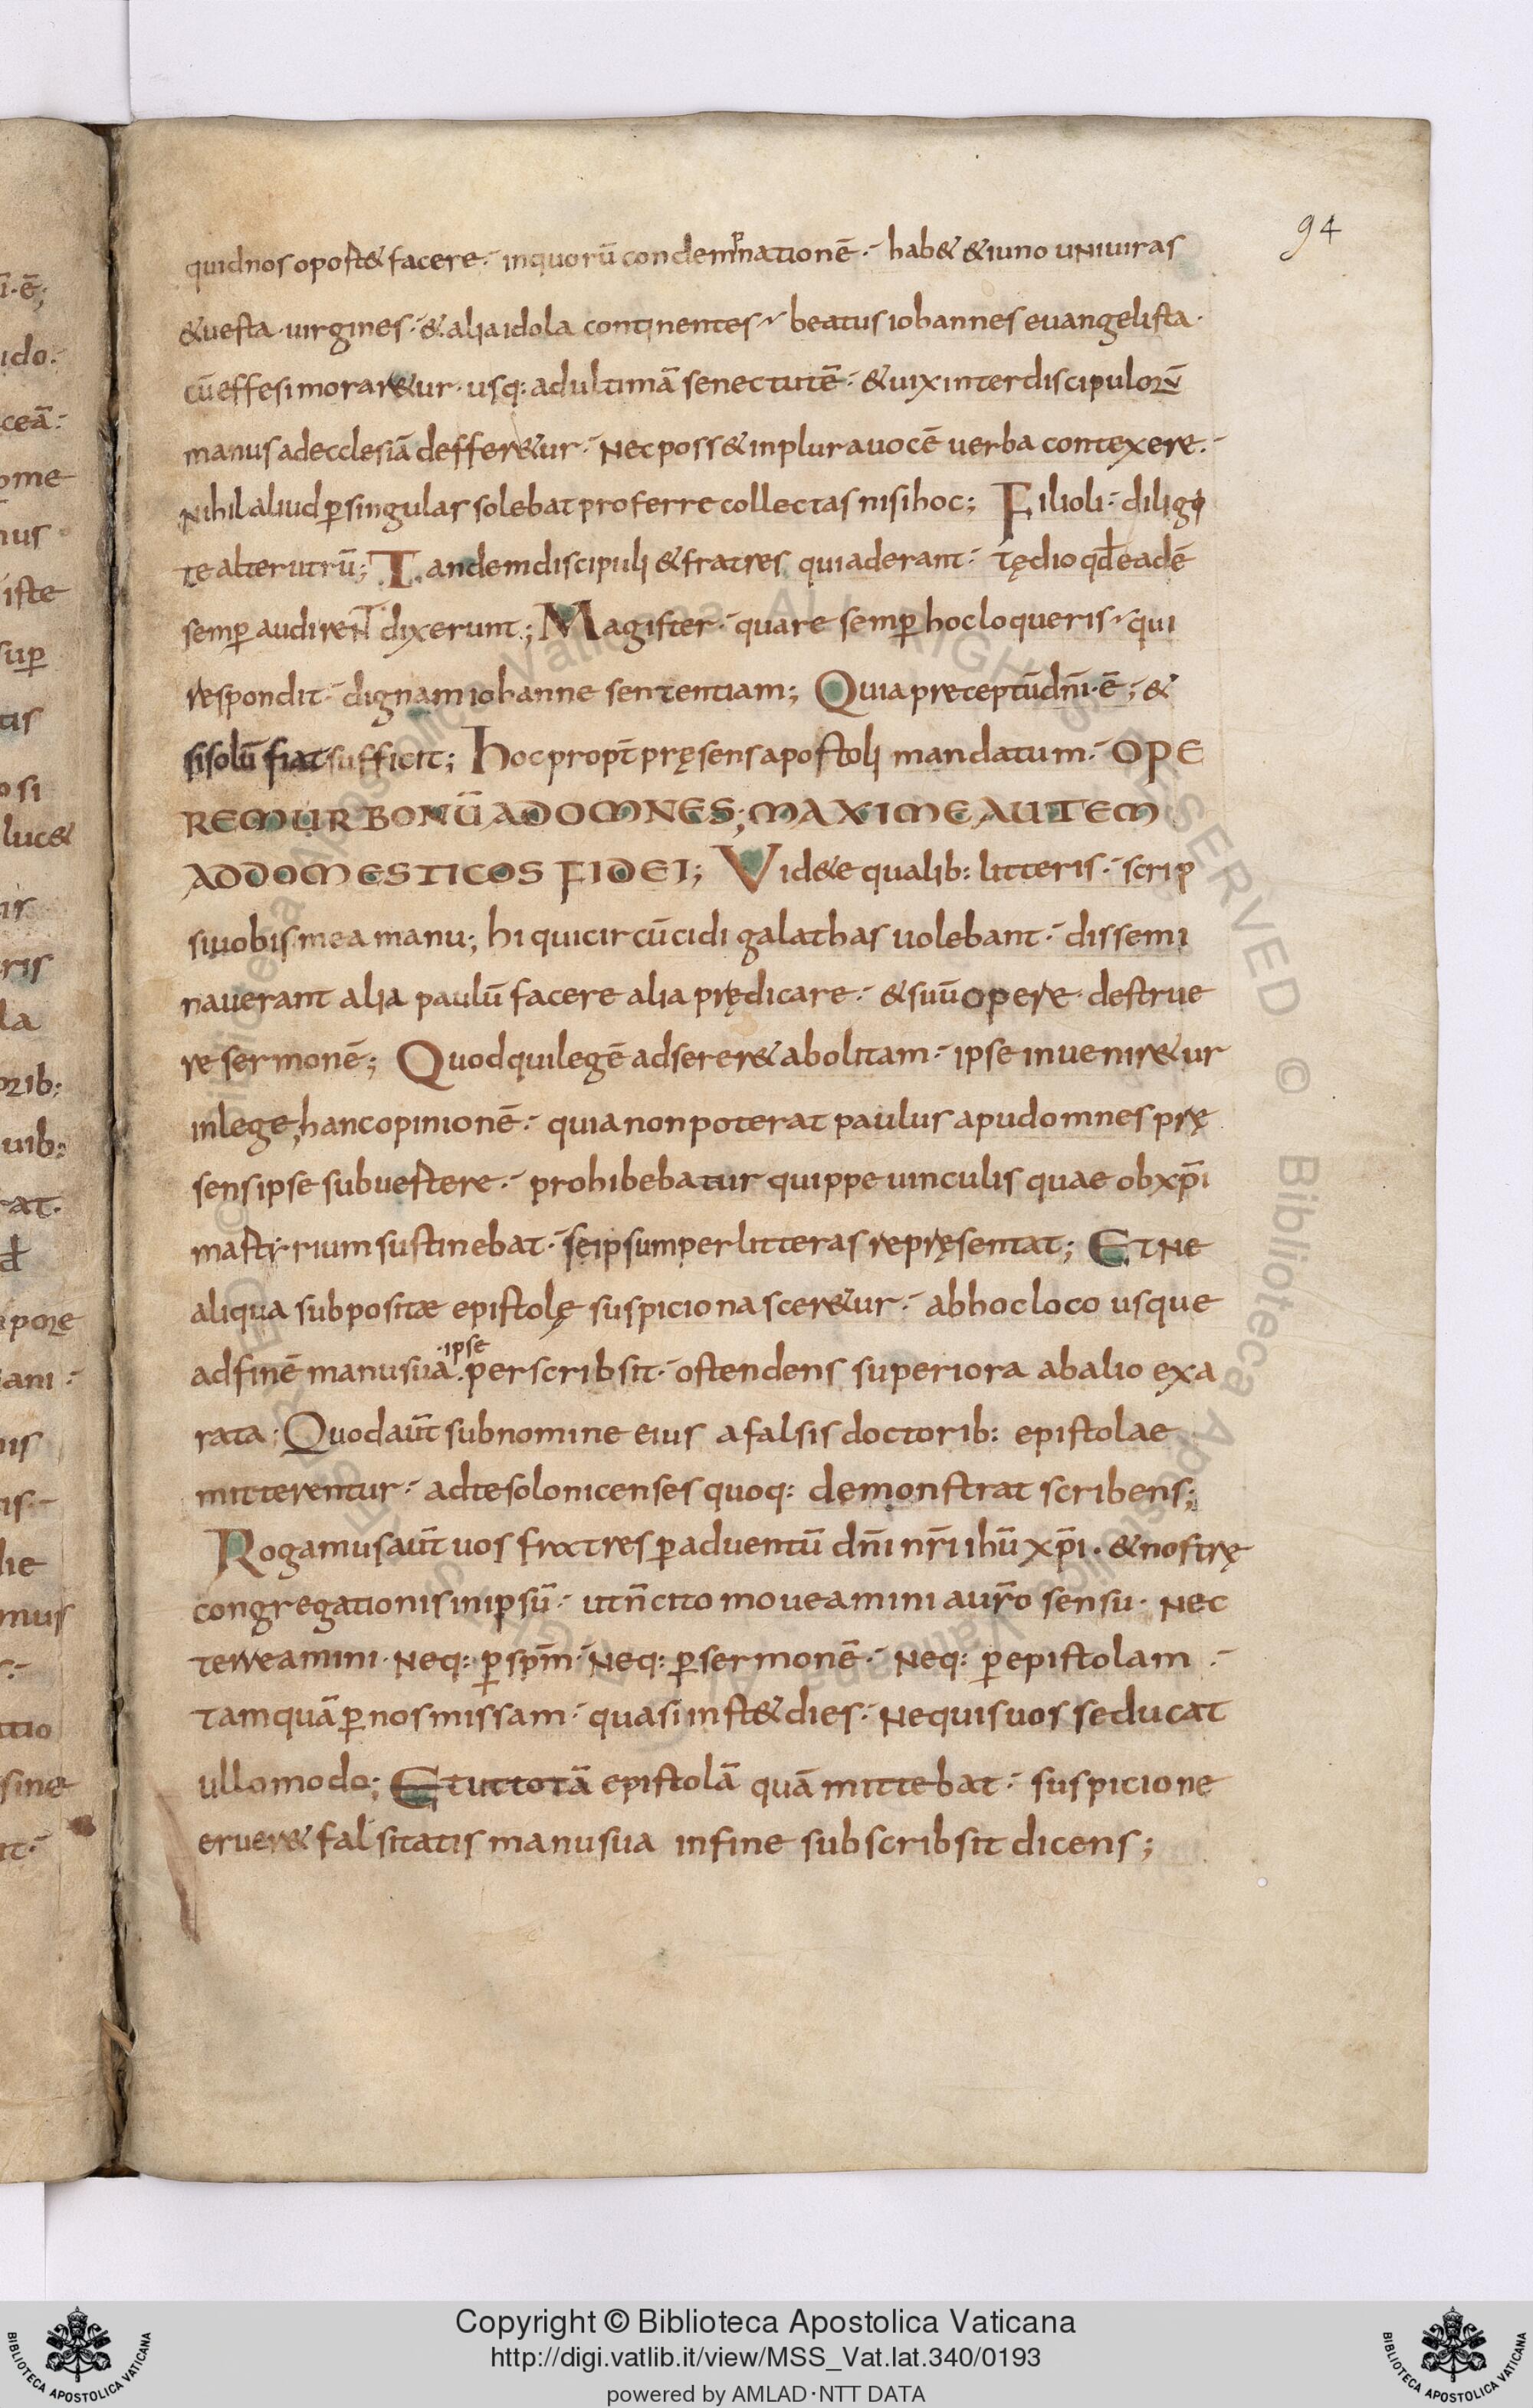 94
quid nos oport& facere· in quorū condemnationē· hab& & iuno uniuiras
& uesta· uirgines· & alia idola continentes· beatus iohannes euangelista·
cū effesi morar&ur· usq: ad ultimā senectutē· & uix inter discipulorū
manus ad ecclesiā deffer&ur· Nec poss& in plura uocē uerba contexere·
Nihil aliud ꝑ singulas solebat proferre collectas nisi hoc; Filioli· diligi
te alterutrū; Tandem discipuli & fratres qui aderant· tędio qđ eadē
semꝑ audirent dixerunt; Magister· quare semꝑ hoc loqueris· qui
respondit· dignam iohanne sententiam; Quia preceptū dn̄i· ē; &
si solū fiat sufficit; Hoc propt̄ pręsens apostoli mandatum· OPE
REMUR BONŪ AD OMNES; MAXIME AUTEM
AD DOMESTICOS FIDEI; Vid&e qualib: litteris· scrip
si uobis mea manu; hi qui circūcidi galathas uolebant· dissemi
nauerant alia paulū facere alia prędicare· & suū opere· destrue
re sermonē; Quod qui legē adserer& abolitam· ipse inuenir&ur
in lege, hanc opinionē· quia non poterat paulus apud omnes prę
sens ipse subuertere· prohibebatur quippe uinculis quae ob xp̄i
martyrium sustinebat· se ipsum per litteras repręsentat; Et ne
aliqua subpositæ epistolę suspicio nascer&ur· ab hoc loco usque
ad finē manu sua ·ipse· perscribsit· ostendens superiora ab alio exa
rata· Quod aūt sub nomine eius a falsis doctorib: epistolae
mitterentur· ad tesolonicenses quoq: demonstrat scribens;
Rogamus aūt uos fratres ꝑ aduentū dn̄i nr̄i ihū xp̄i· & nostrę
congregationis in ipsū· ut n̄ cito moueamini a ur̄o sensu· Nec
terreamini· Neq: ꝑ spm̄· Neq: ꝑ sermonē· Neq: ꝑ epistolam·
tamquā ꝑ nos missam· quasi inst& dies· Ne quis uos seducat
ullo modo; Et ut totā epistolā quā mittebat· suspicione
eruer& falsitatis manu sua in fine subscribsit dicens;
Copyright © Biblioteca Apostolica Vaticana
http://digi.vatlib.it/view/MSS_Vat.lat.340/0193
powered by AMLAD·NTT DATA